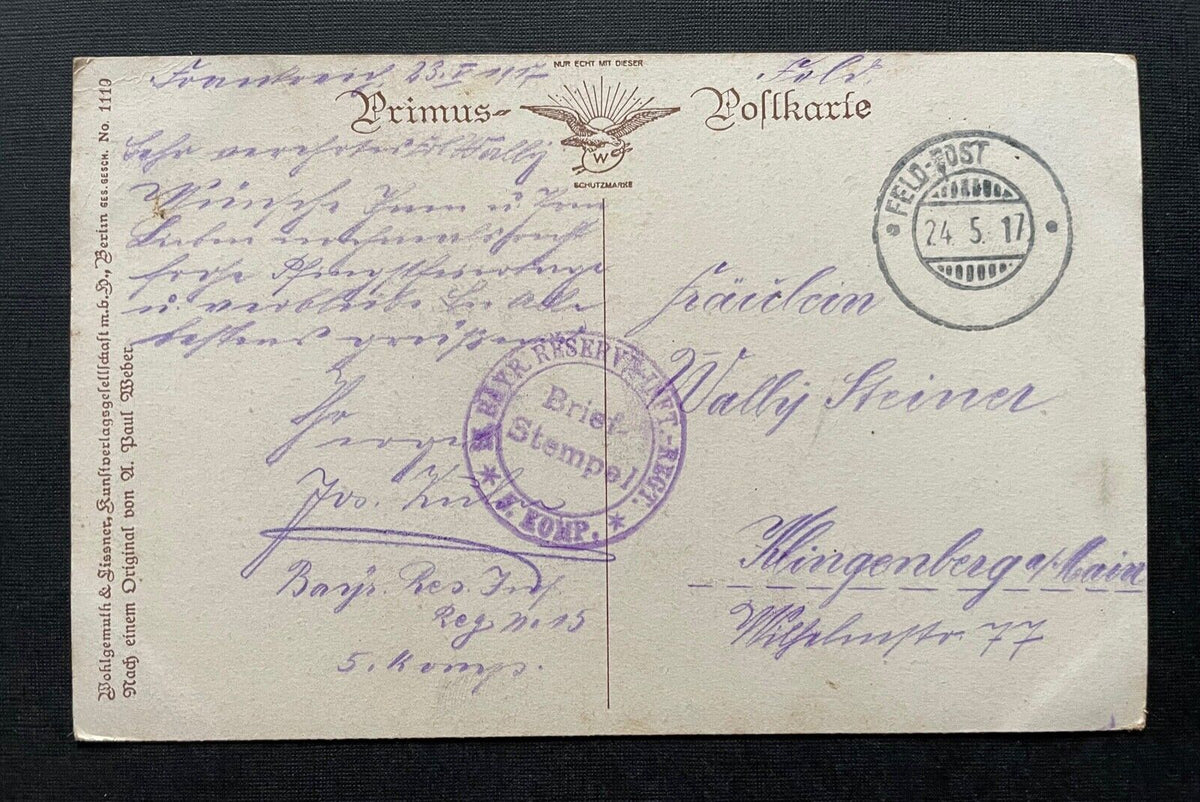 Frankreich 23. V 1917
Feld
NUR ECHT MIT DIESER
Primus-Postkarte
W
SCHUTZMARKE
Sehr verehrtes Wally
Wünsche Ihnen u Ihren
Lieben nochmals recht
frohe Pfingstfeiertage
u verbleibe Sie alle
bestens grüßend
Ihr
Jos.
Bayr. Res. Inf.
Reg No 15
5. Komp.
FELD-POST
24. 5. 17
Fräulein
Wally Steiner
Klingenberg a/Main
Wilhelmstr. 77
BAYR. RESERVE-INFT.-REGT.
Brief-
Stempel
KOMP.
Wohlgemuth & Lissner, Kunstverlagsgesellschaft m.b.H., Berlin GES. GESCH. No. 1110
Nach einem Original von A. Paul Weber